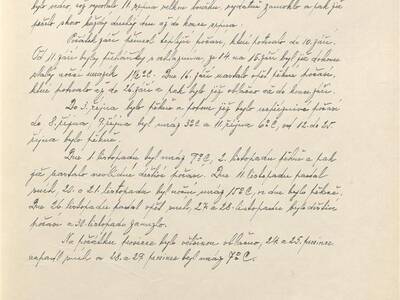 bylo vedro, což vyvrcholilo 11. srpna velkou bouřkou, vydatně zamoklo a pak již
pršelo skoro každý druhý den až do konce srpna.
Počátek září přinesl teplejší počasí, které potrvalo do 10. září.
Od 11. září byly přeháňky s ochlazením, ze 14. na 15. září byl již dokonce
slabý noční mrazík 1½°C. Dne 16. září nastalo opět pěkné počasí,
které potrvalo až do 26. září a pak bylo již oblačno až do konce září.
Do 3. října bylo pěkně a potom již bylo nepříznivé počasí
do 8. října, 9. října byl mráz 3°C a 11. října 6°C, od 12. do 25.
října bylo pěkně.
Dne 1. listopadu byl mráz 7°C, 2. listopadu pěkně a pak
již nastalo nevlídné deštivé počasí. Dne 11. listopadu padal
sníh, 20. a 21. listopadu byl noční mráz 15°C, ve dne bylo pěkně.
Dne 26. listopadu padal opět sníh, 27. a 28. listopadu bylo deštivé
počasí a 30. listopadu zamrzlo.
Na počátku prosince bylo většinou oblačno, 24. a 25. prosince
napadl sníh a 28. a 29. prosince byl mráz 7°C.